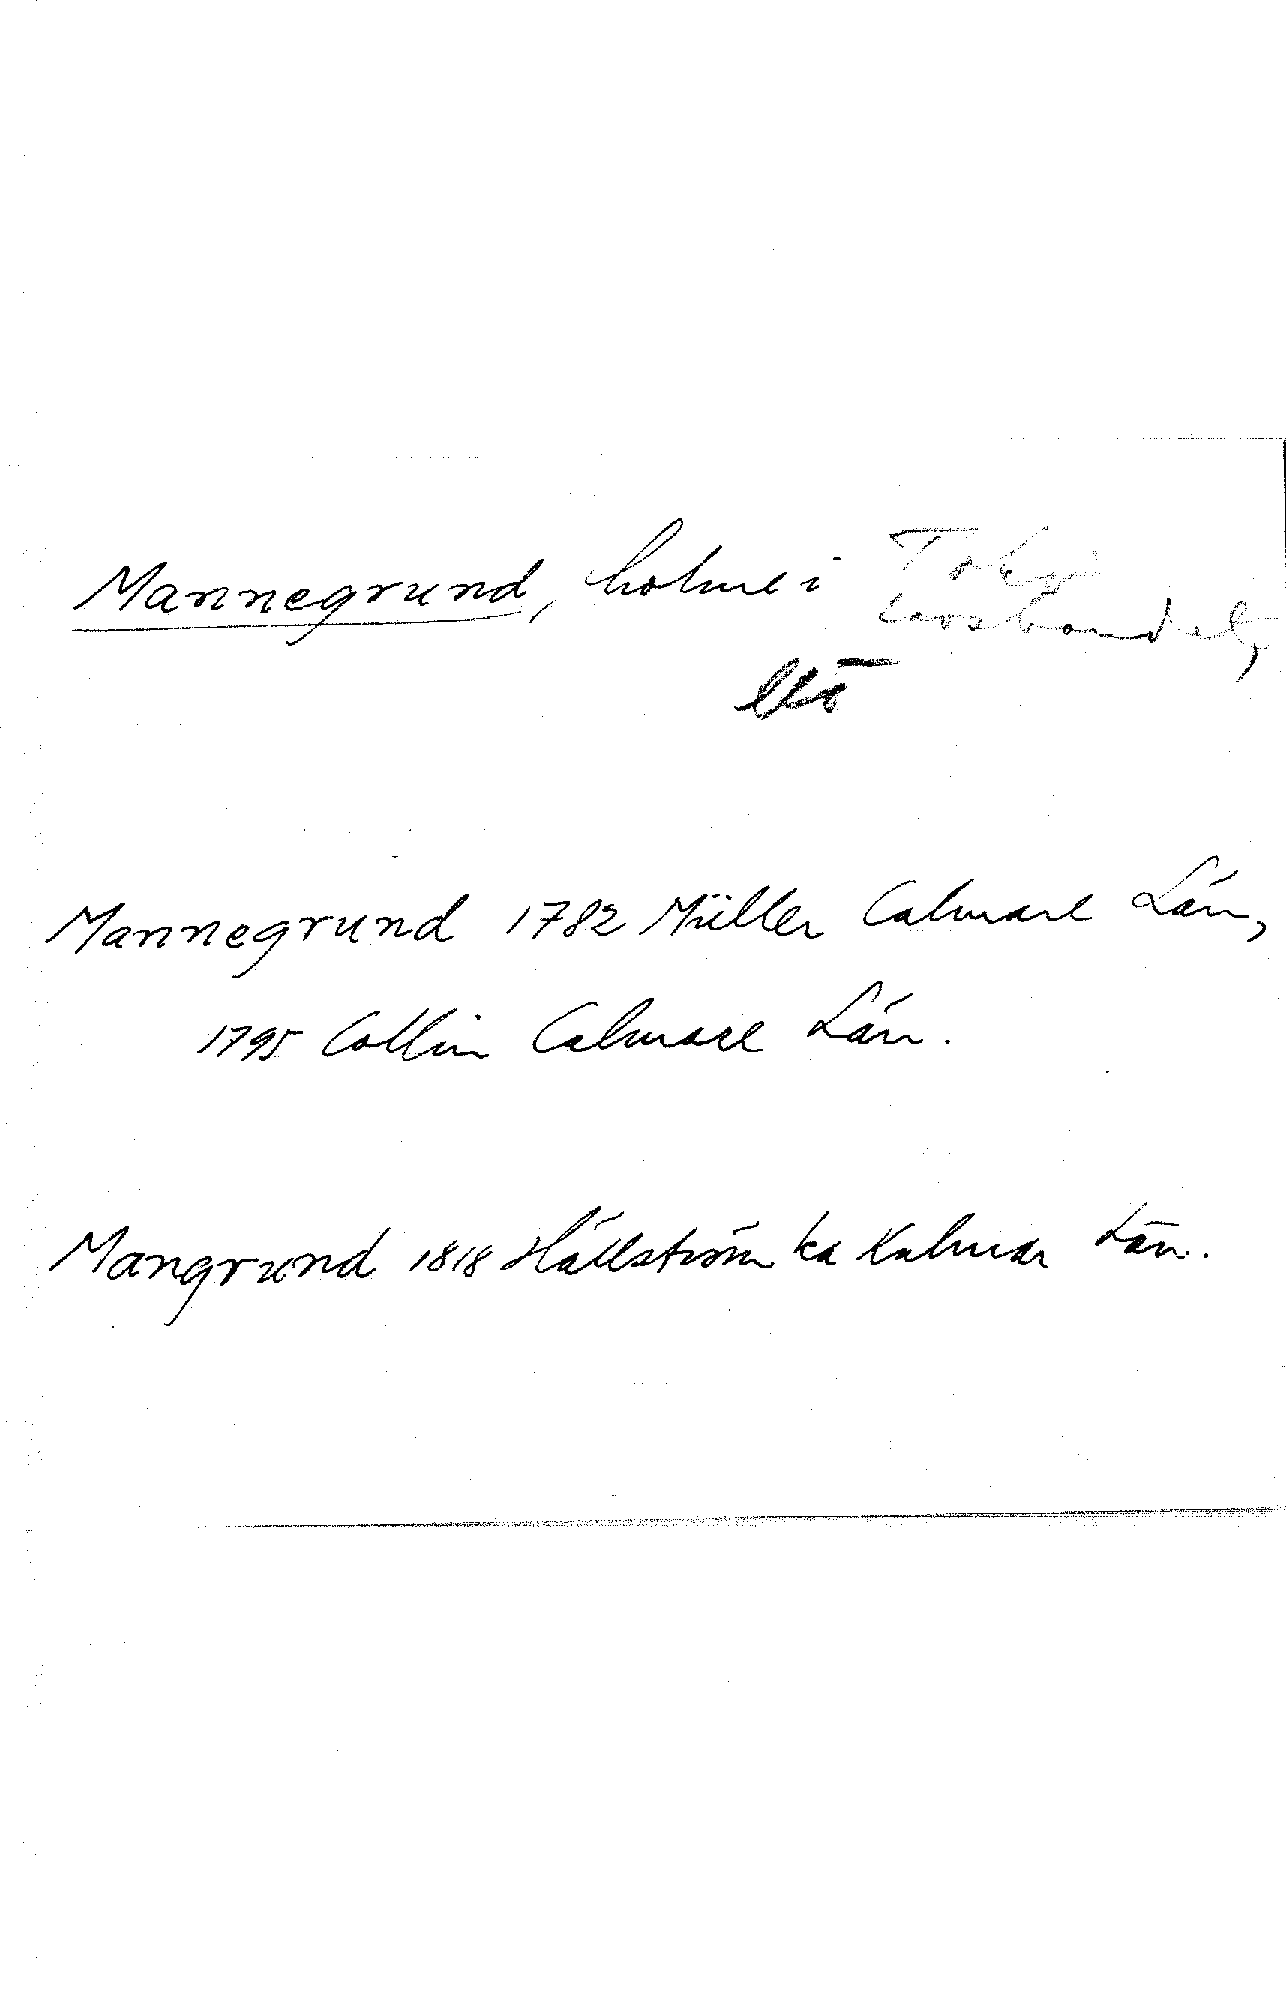 Mannegrund, holme i Torsö
Mannegrund 1782 Müller Calmare Län,
1795 Collin Calmare Län.
Mangrund 1818 Hällström ka Kalmar Län.